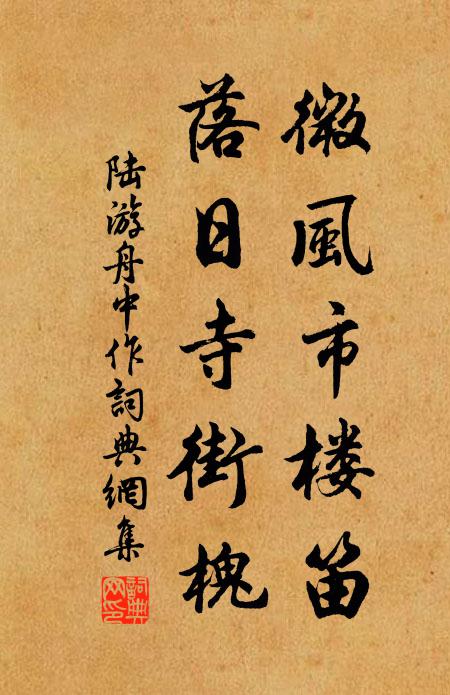 微風市楼笛
落日寺街槐
陸游舟中作詞典網集
詞典网印